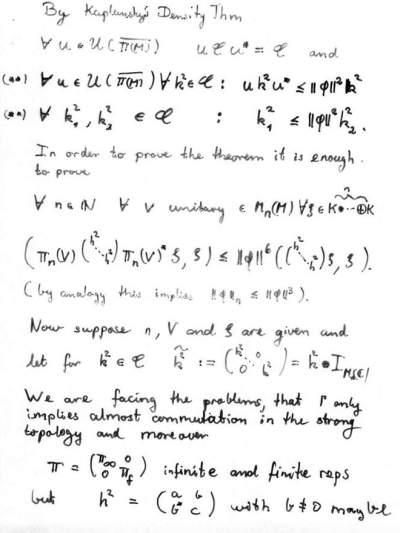 By Kaplansky's Density Thm
∀ u ∈ U(π(M)‾) u 𝒞 u* = 𝒞 and
(**) ∀ u ∈ U(π(M)‾) ∀ k² ∈ 𝒞 : u k² u* ≤ ‖φ‖² k²
(**) ∀ k₁², k₂² ∈ 𝒞 : k₁² ≤ ‖φ‖² k₂².
In order to prove the theorem it is enough
to prove
∀ n ∈ ℕ ∀ V unitary ∈ Mₙ(M) ∀ ξ ∈ K⊕⋯⊕K
(πₙ(V) (h² ⋱ h²) πₙ(V)* ξ, ξ) ≤ ‖φ‖⁶ ((h² ⋱ h²) ξ, ξ).
(by analogy this implies ‖φ‖ₙ ≤ ‖φ‖³).
Now suppose n, V and ξ are given and
let for k² ∈ 𝒞 k̃² := (k² 0 ⋱ 0 k²) = k² ⊗ I
We are facing the problems, that Γ only
implies almost commutation in the strong
topology and moreover
π = (π∞ 0 0 π_f) infinite and finite reps
but h² = (a b b* c) with b ≠ 0 maybe